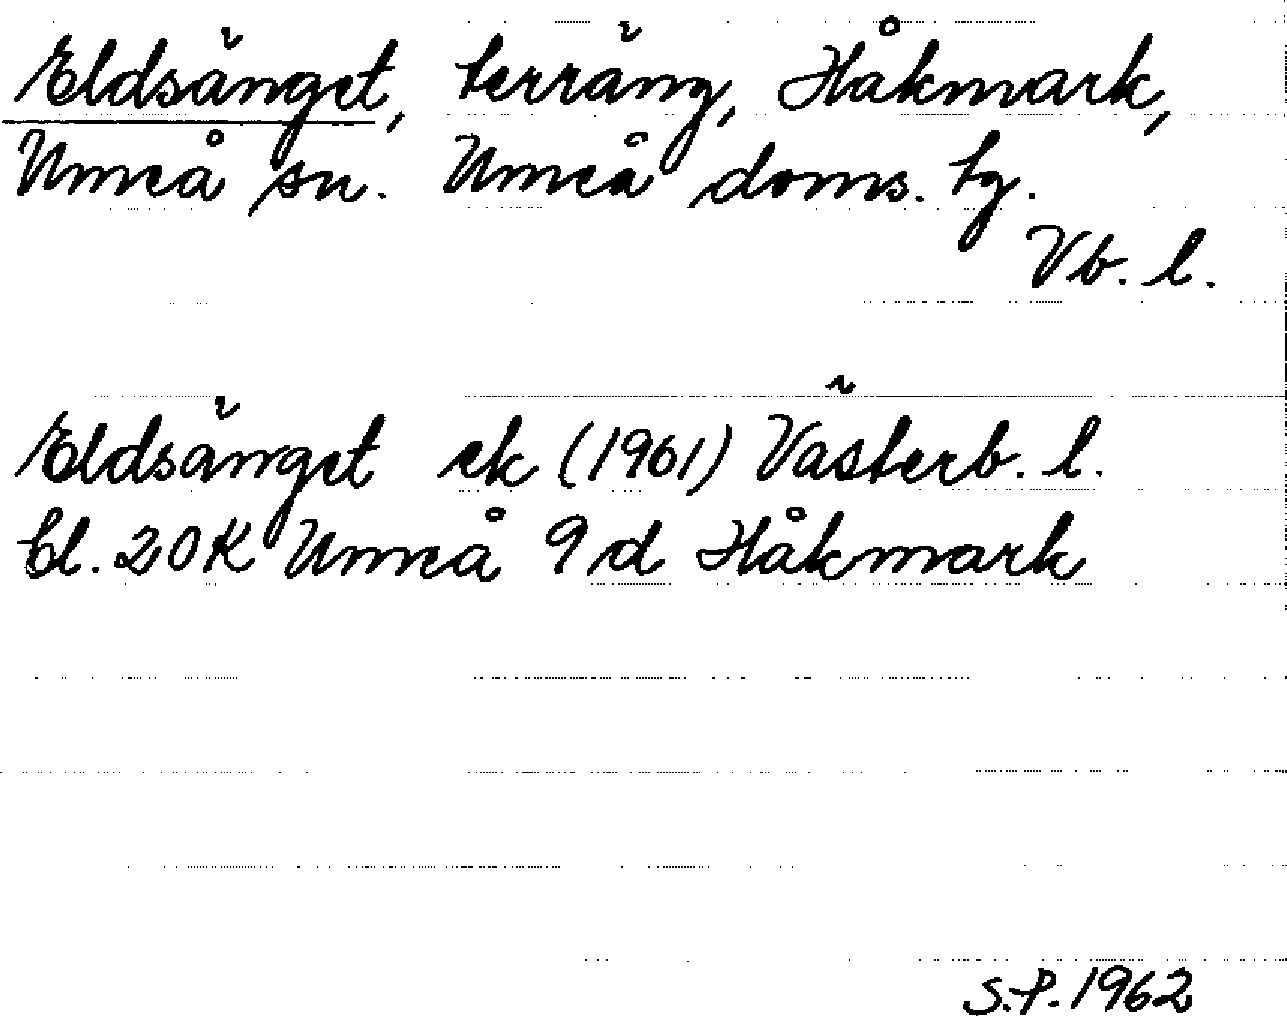 Eldsänget, terräng, Håkmark,
Umeå sn. Umeå doms. tg.
Vb. l.
Eldsänget ek (1961) Västerb. l.
bl. 20K Umeå 9d Håkmark
S.P. 1962